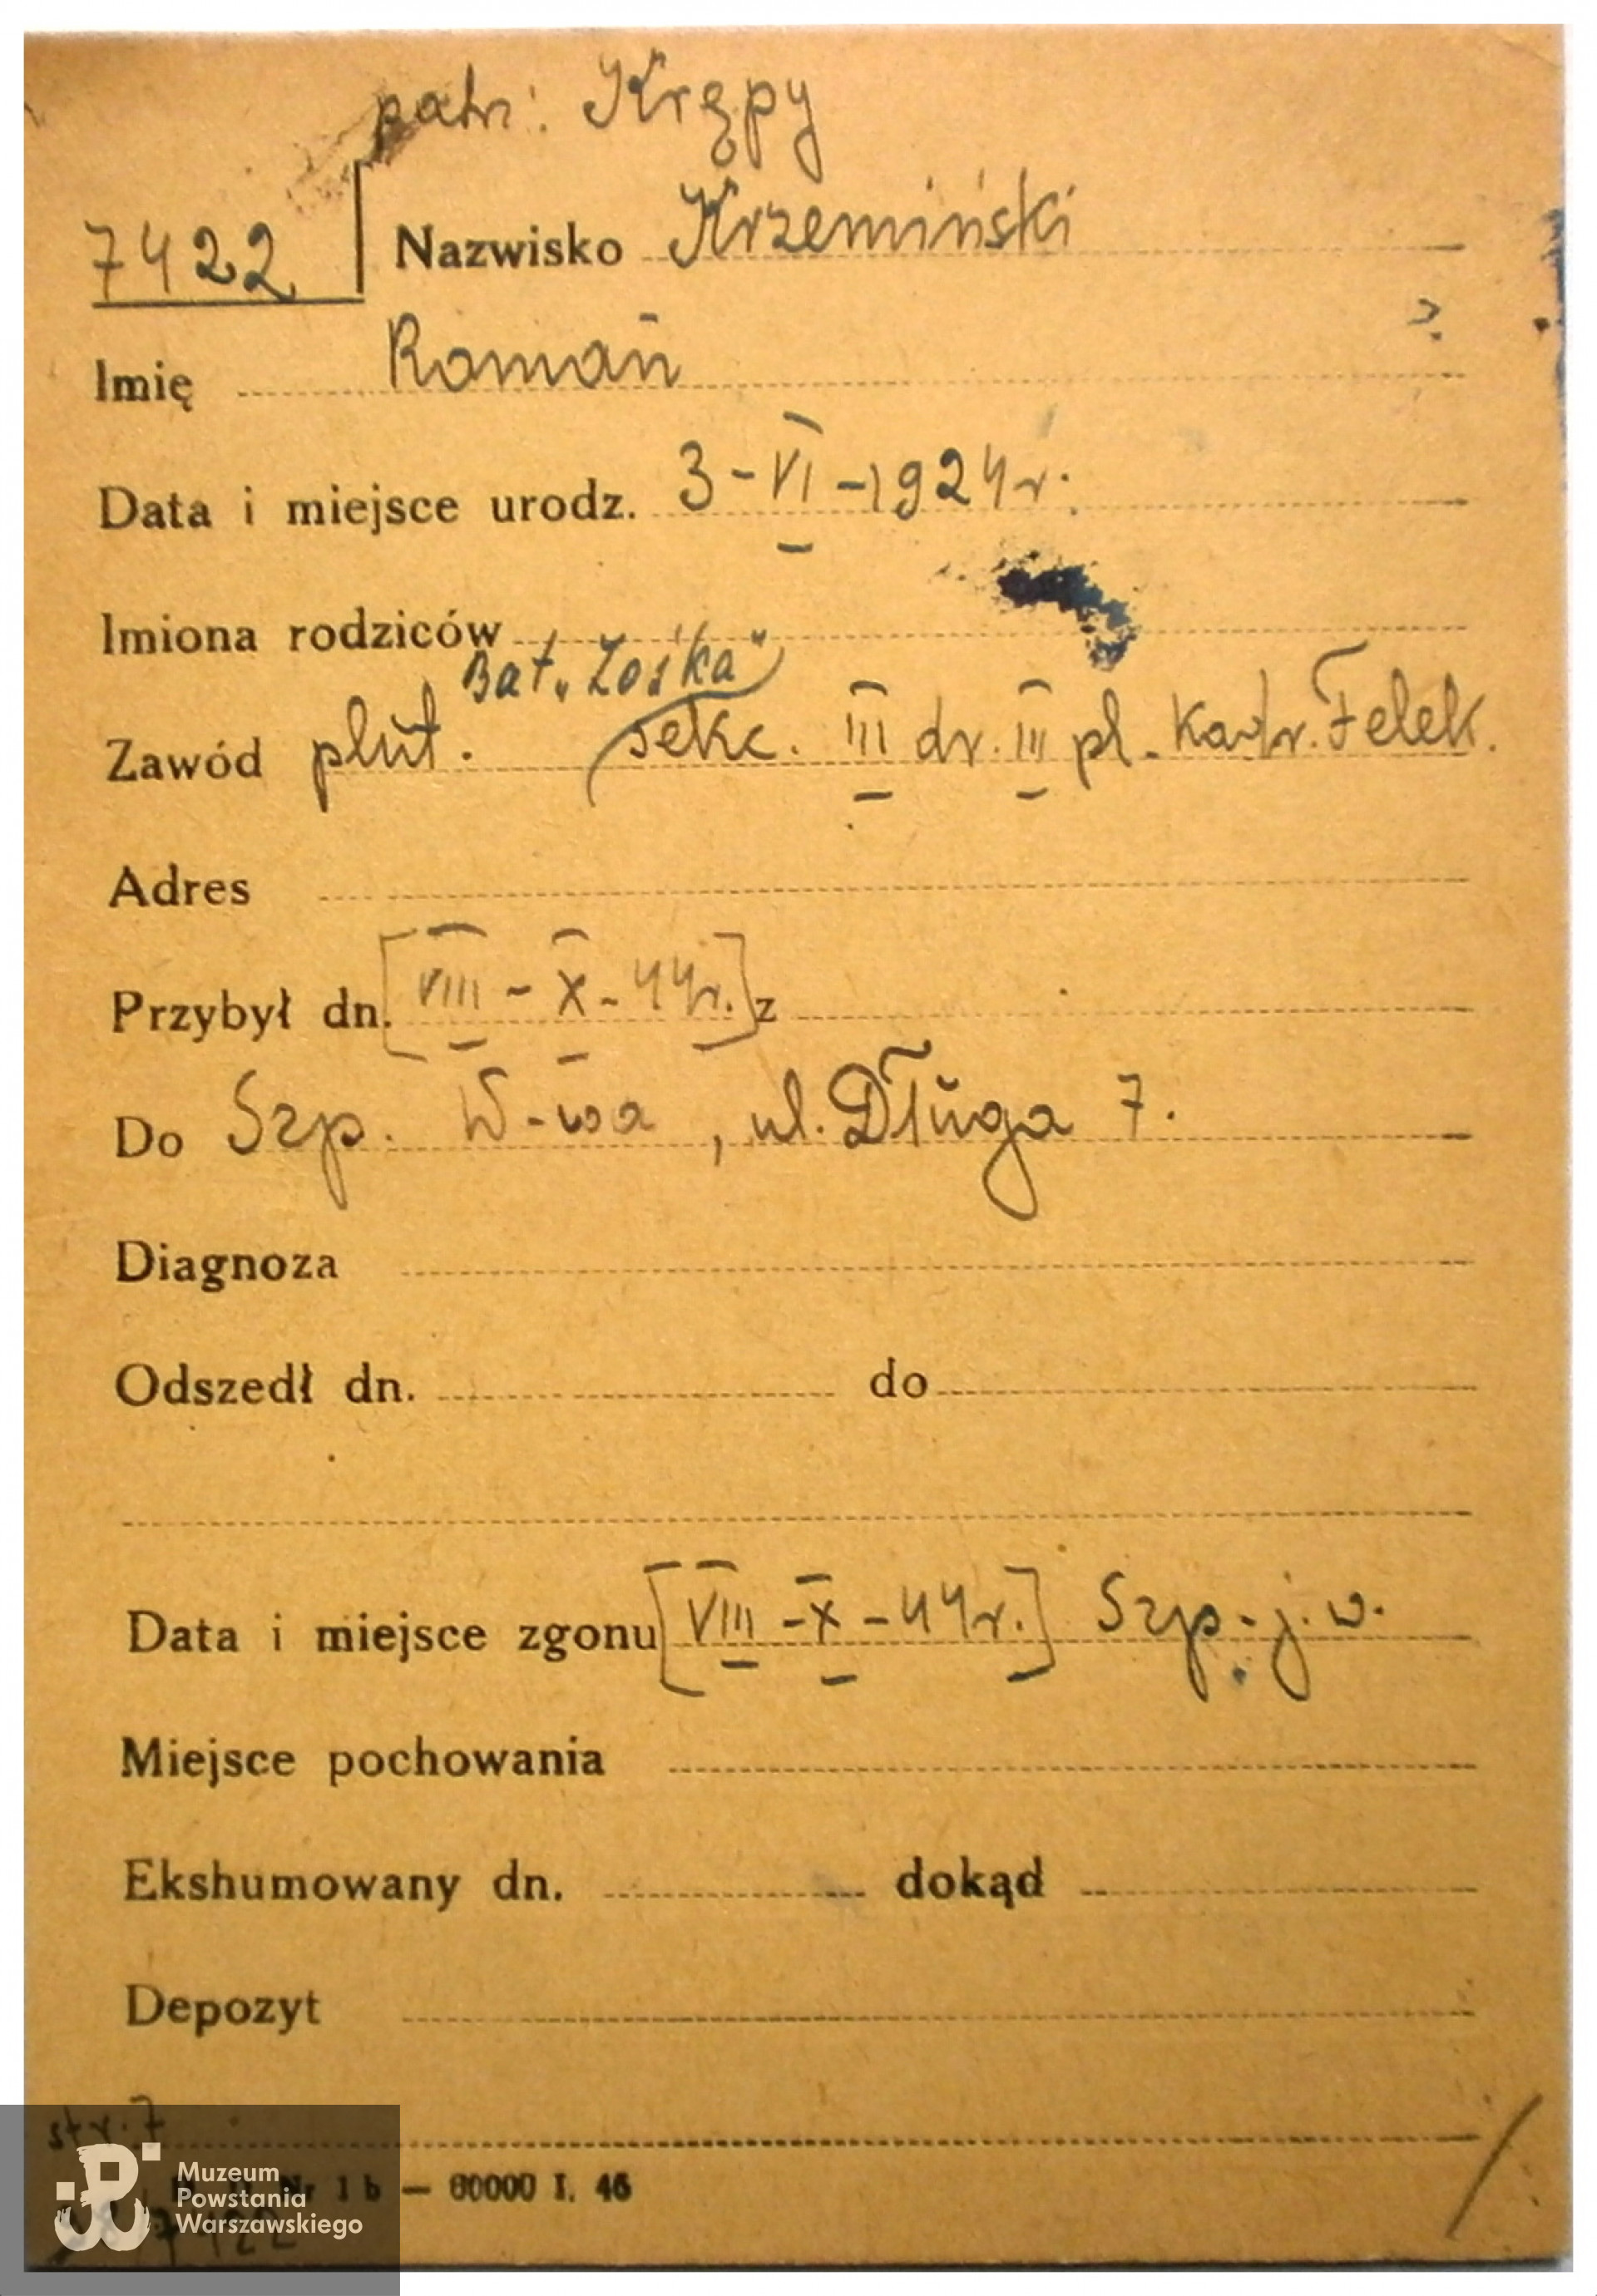 patrz: Krępy
7422
Nazwisko Krzemiński
Imię Roman
?
Data i miejsce urodz. 3-VI-1924r.
Imiona rodziców
Bat. „Zośka”
Zawód plut. sekc. III dr. III pl. Felek.
Adres
Przybył dn. [VIII - X - 44r.] z
Do Szp. W-wa, ul. Długa 7.
Diagnoza
Odszedł dn. do
Data i miejsce zgonu [VIII - X - 44r.] Szp. j.w.
Miejsce pochowania
Ekshumowany dn. dokąd
Depozyt
str. 7
Nr 1 b — 60000 I. 46
Muzeum
Powstania
Warszawskiego